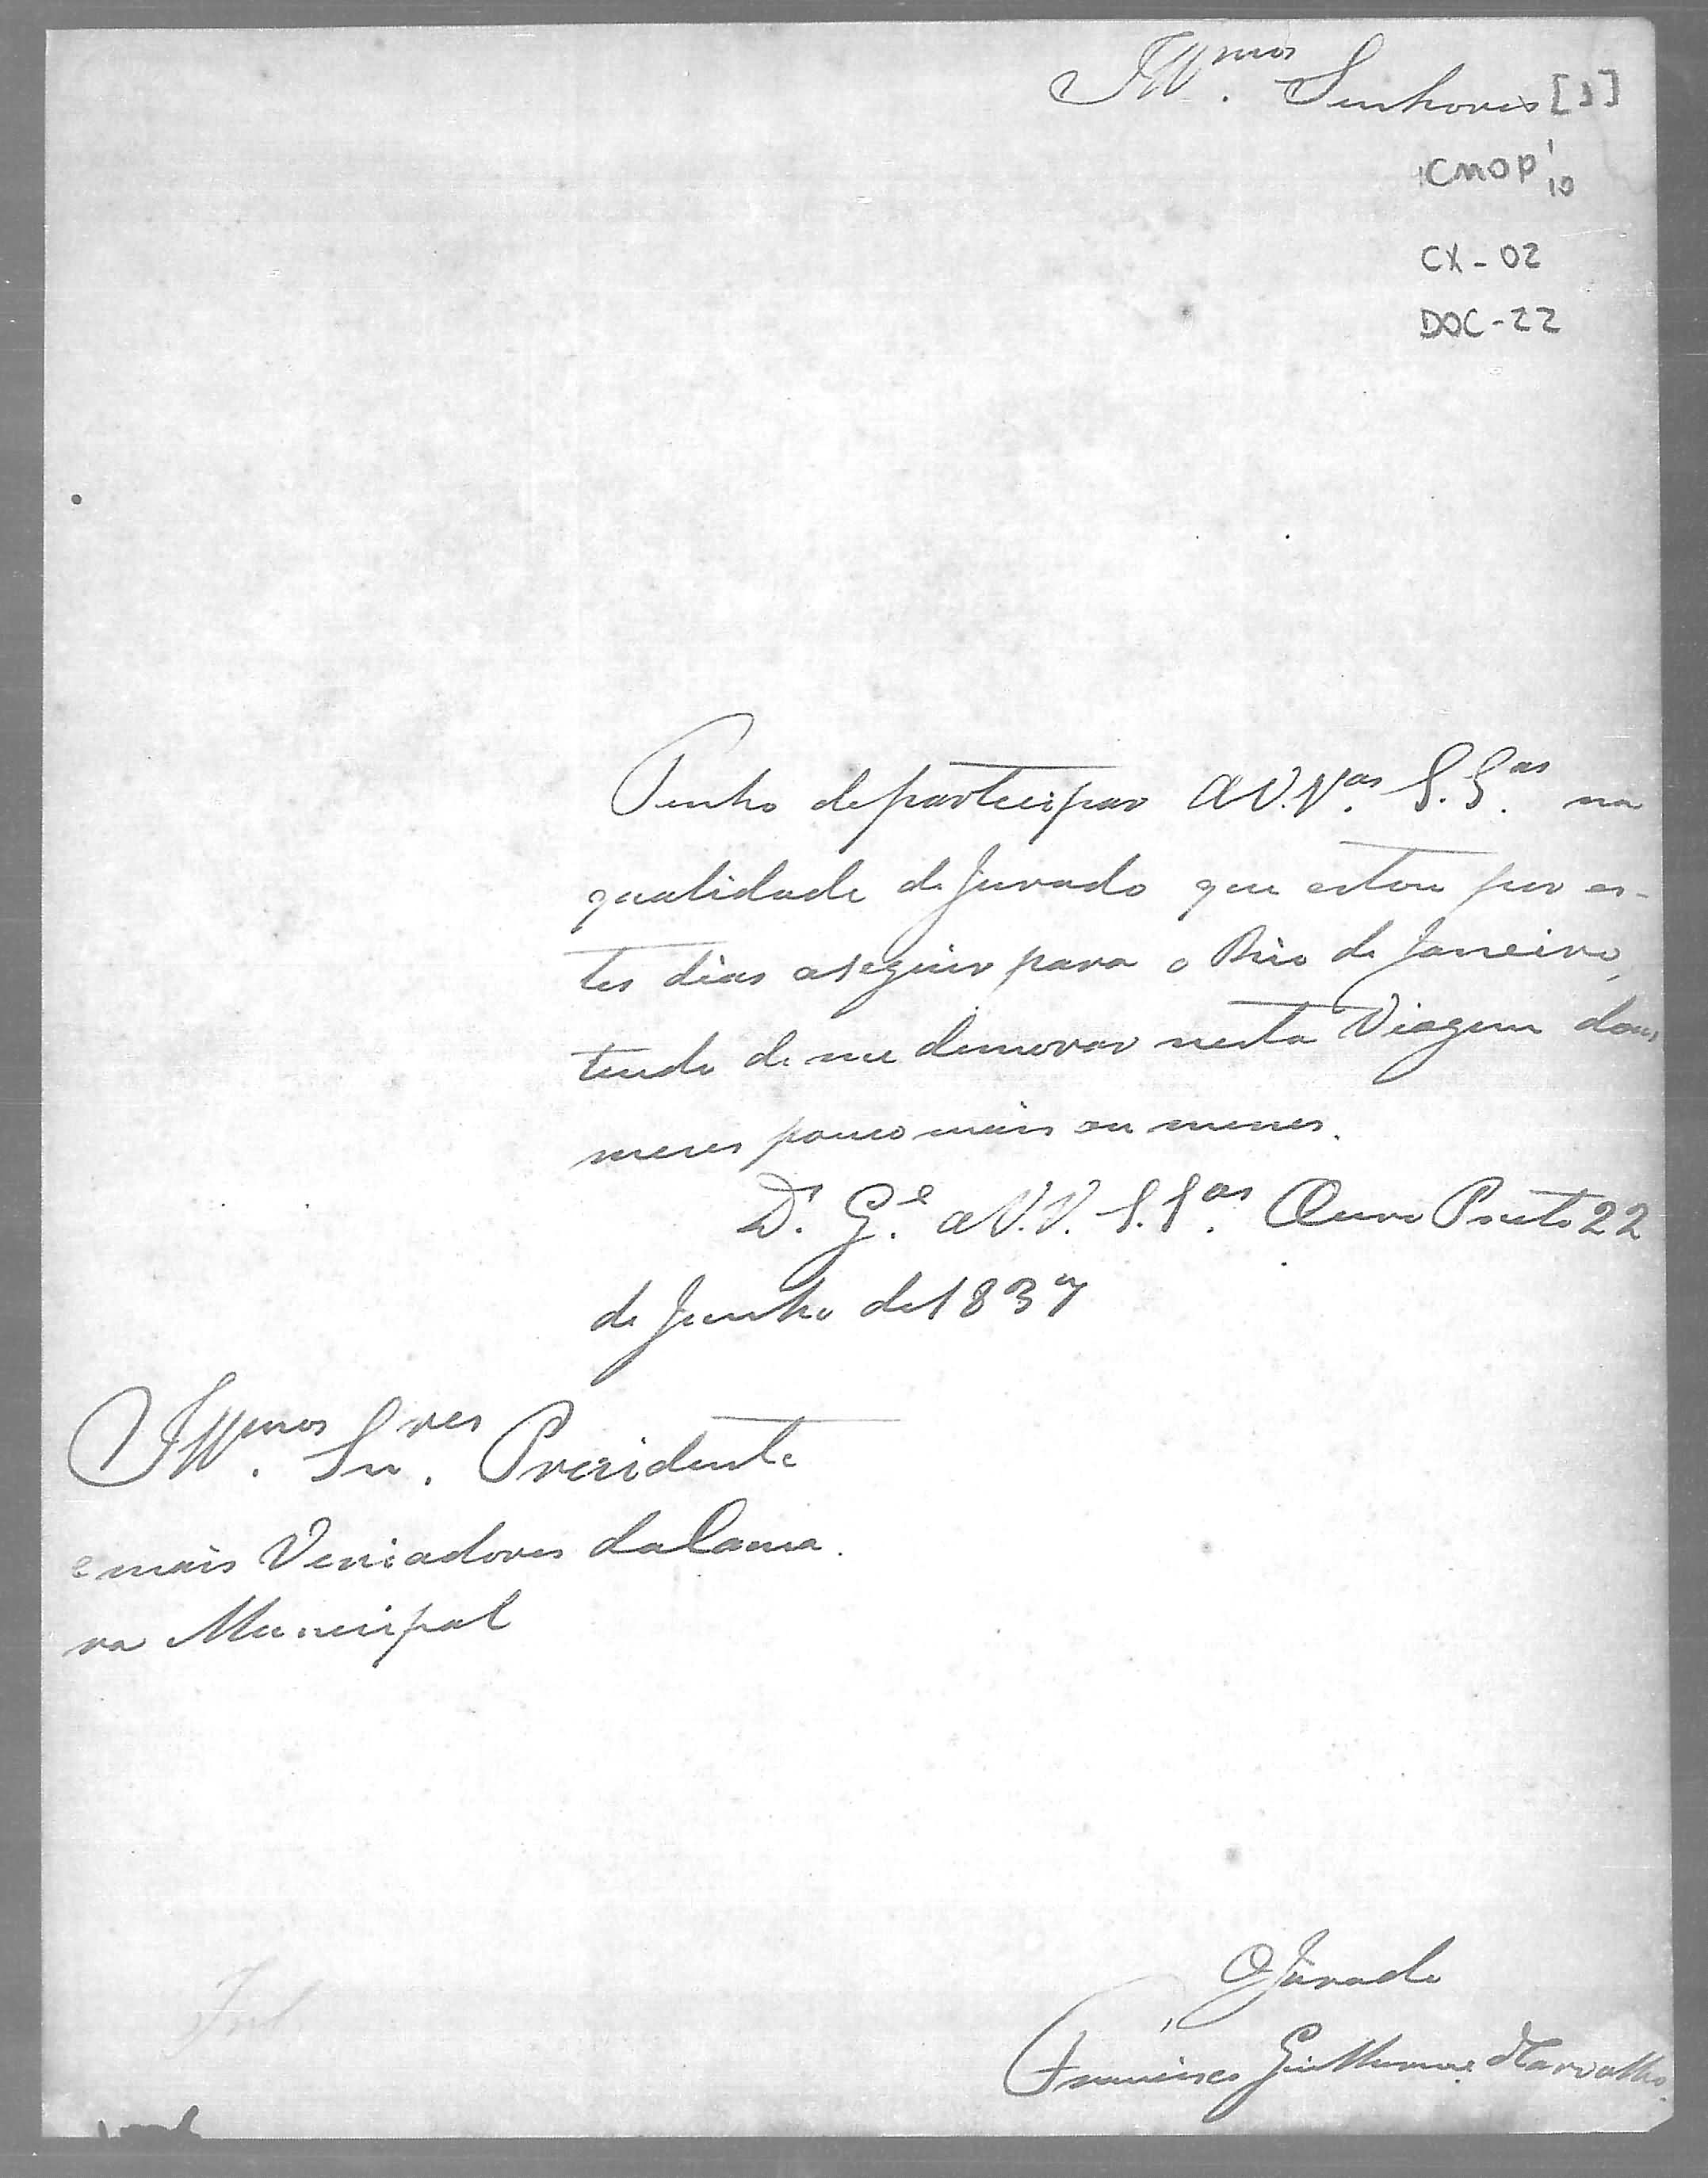 Ill.mos Senhores [1]
CMOP 1/10
CX-02
DOC-22
Tenho departecipar a V.Vas. S.Sas. na
qualidade de Jurado que estou por es-
tes dias aseguir para o Rio de Janeiro,
tendo de me demorar nesta Viagem dous
meses pouco mais ou menos.
Ds. Ge. a V.V. S.Sas. Ouro Preto 22
de Junho de 1837
Ill.mos Sn.res Prezidente
e mais Veriadores da Cama.
ra Municipal
O Jurado
Francisco Guilherme de Carvalho.